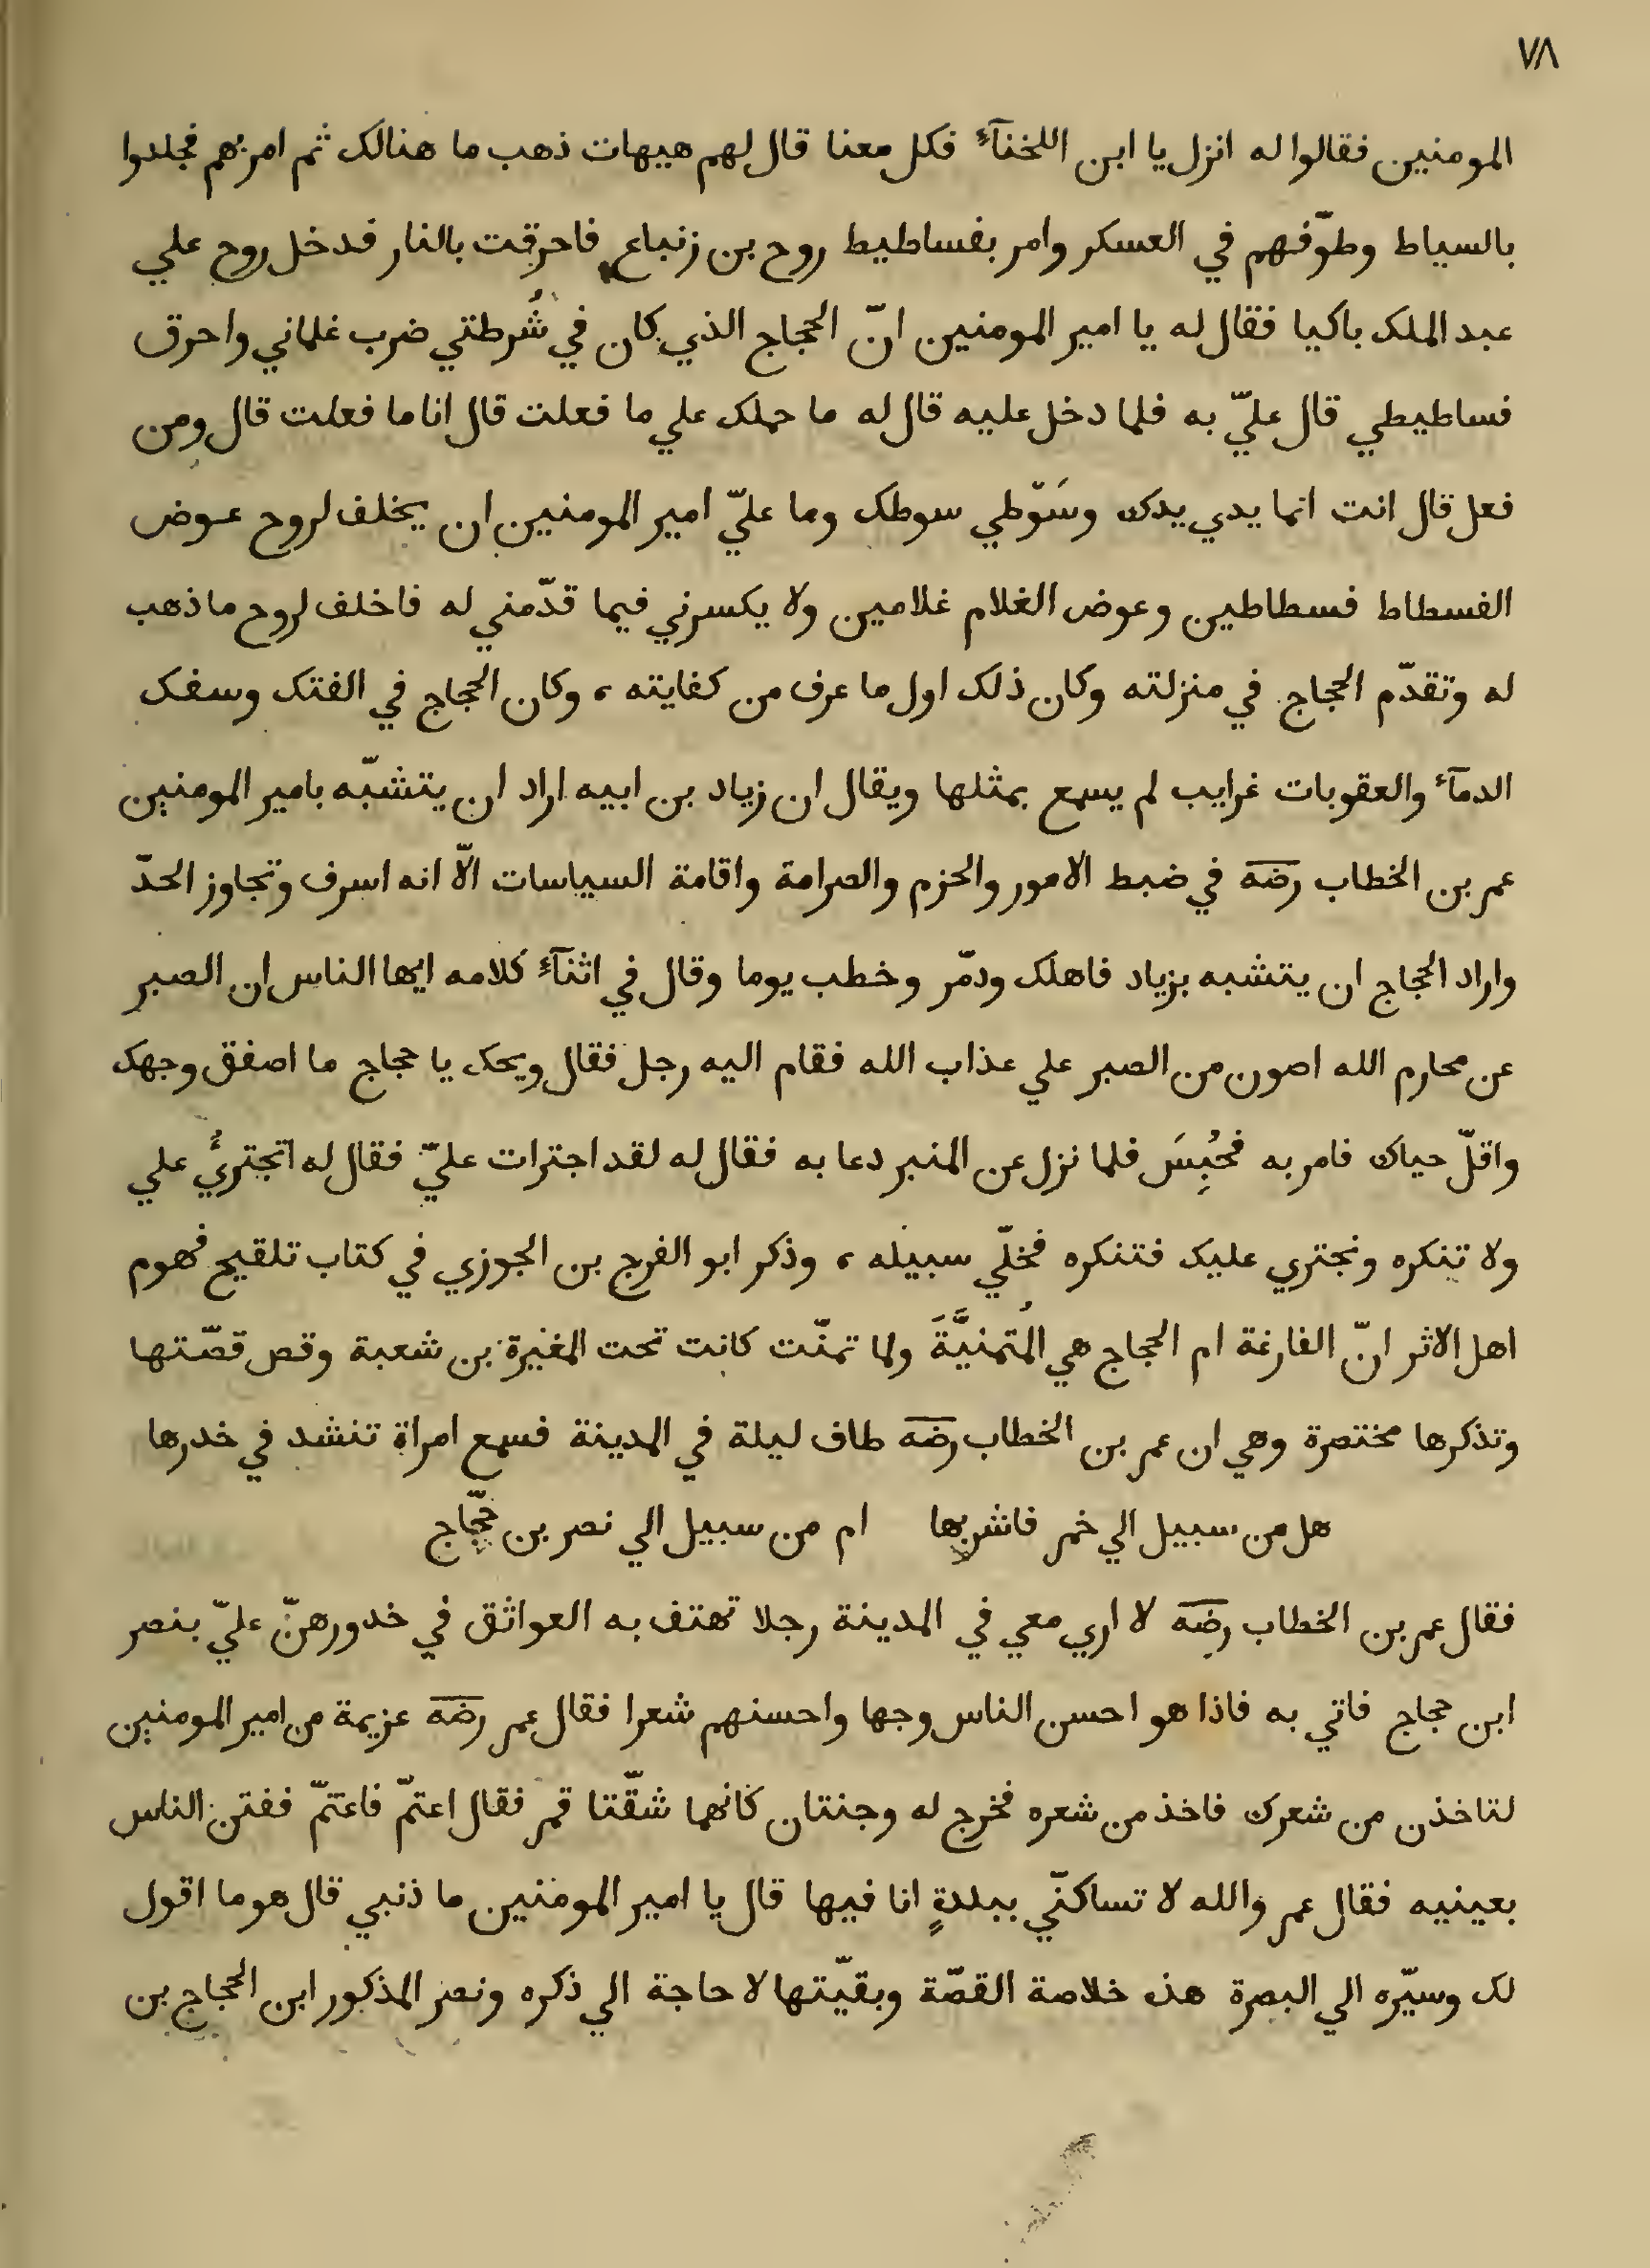 ٧٨
المومنين فقالوا له انزل يا ابن اللخنآء فكل معنا قال لهم هيهات ذهب ما هنالك ثم امر بهم فجلدوا
بالسياط وطوّفهم في العسكر وامر بفساطيط روح بن زنباع فاحرقت بالنار فدخل روح علي
عبد الملك باكيا فقال له يا امير المومنين انّ الحجاج الذي كان في شُرطتي ضرب غلماني واحرق
فساطيطي قال عليّ به فلما دخل عليه قال له ما حملك علي ما فعلت قال انا ما فعلت قال ومن
فعل قال انت انما يدي يدك وسَوّطي سوطك وما عليّ امير المومنين ان يخلف لروح عوض
الفسطاط فسطاطين وعوض الغلام غلامين ولا يكسرني فيما قدّمني له فاخلف لروح ما ذهب
له وتقدّم الحجاج في منزلته وكان ذلك اول ما عرف من كفايته ، وكان الحجاج في الفتك وسفك
الدمآء والعقوبات غرايب لم يسمع بمثلها ويقال ان زياد بن ابيه اراد ان يتشبّه بامير المومنين
عمر بن الخطاب رضه في ضبط الامور والحزم والصرامة واقامة السياسات الّا انه اسرف وتجاوز الحدّ
واراد الحجاج ان يتشبه بزياد فاهلك ودمّر وخطب يوما وقال في اثنآء كلامه ايها الناس ان الصبر
عن محارم الله اصون من الصبر علي عذاب الله فقام اليه رجل فقال ويحك يا حجاج ما اصفق وجهك
واقلّ حياك فامر به فحُبِسَ فلما نزل عن المنبر دعا به فقال له لقد اجترات عليّ فقال له اتجتريُ علي
ولا تنكره ونجتري عليك فتنكره فخلّي سبيله ، وذكر ابو الفرج بن الجوزي في كتاب تلقيح فهوم
اهل الاثر انّ الفارغة ام الحجاج هي المُتمنيَّةَ ولما تمنّت كانت تحت المغيرة بن شعبة وقص قصّتها
وتذكرها مختصرة وهي ان عمر بن الخطاب رضه طاف ليلة في المدينة فسمع امراة تنشد في خدرها
هل من سبيل الي خمر فاشربها ام من سبيل الي نصر بن حجّاج
فقال عمر بن الخطاب رضه لا اري معي في المدينة رجلا تهتف به العواتق في خدورهنّ عليّ بنصر
ابن حجاج فاتي به فاذا هو احسن الناس وجها واحسنهم شعرا فقال عمر رضه عزيمة من امير المومنين
لتاخذن من شعرك فاخذ من شعره فخرج له وجنتان كانهما شقّتا قمر فقال اعتمّ فاعتمّ ففتن الناس
بعينيه فقال عمر والله لا تساكنّي ببلدةٍ انا فيها قال يا امير المومنين ما ذنبي قال هو ما اقول
لك وسيّره الي البصرة هذه خلاصة القصّة وبقيّتها لا حاجة الي ذكره ونصر المذكور ابن الحجاج بن